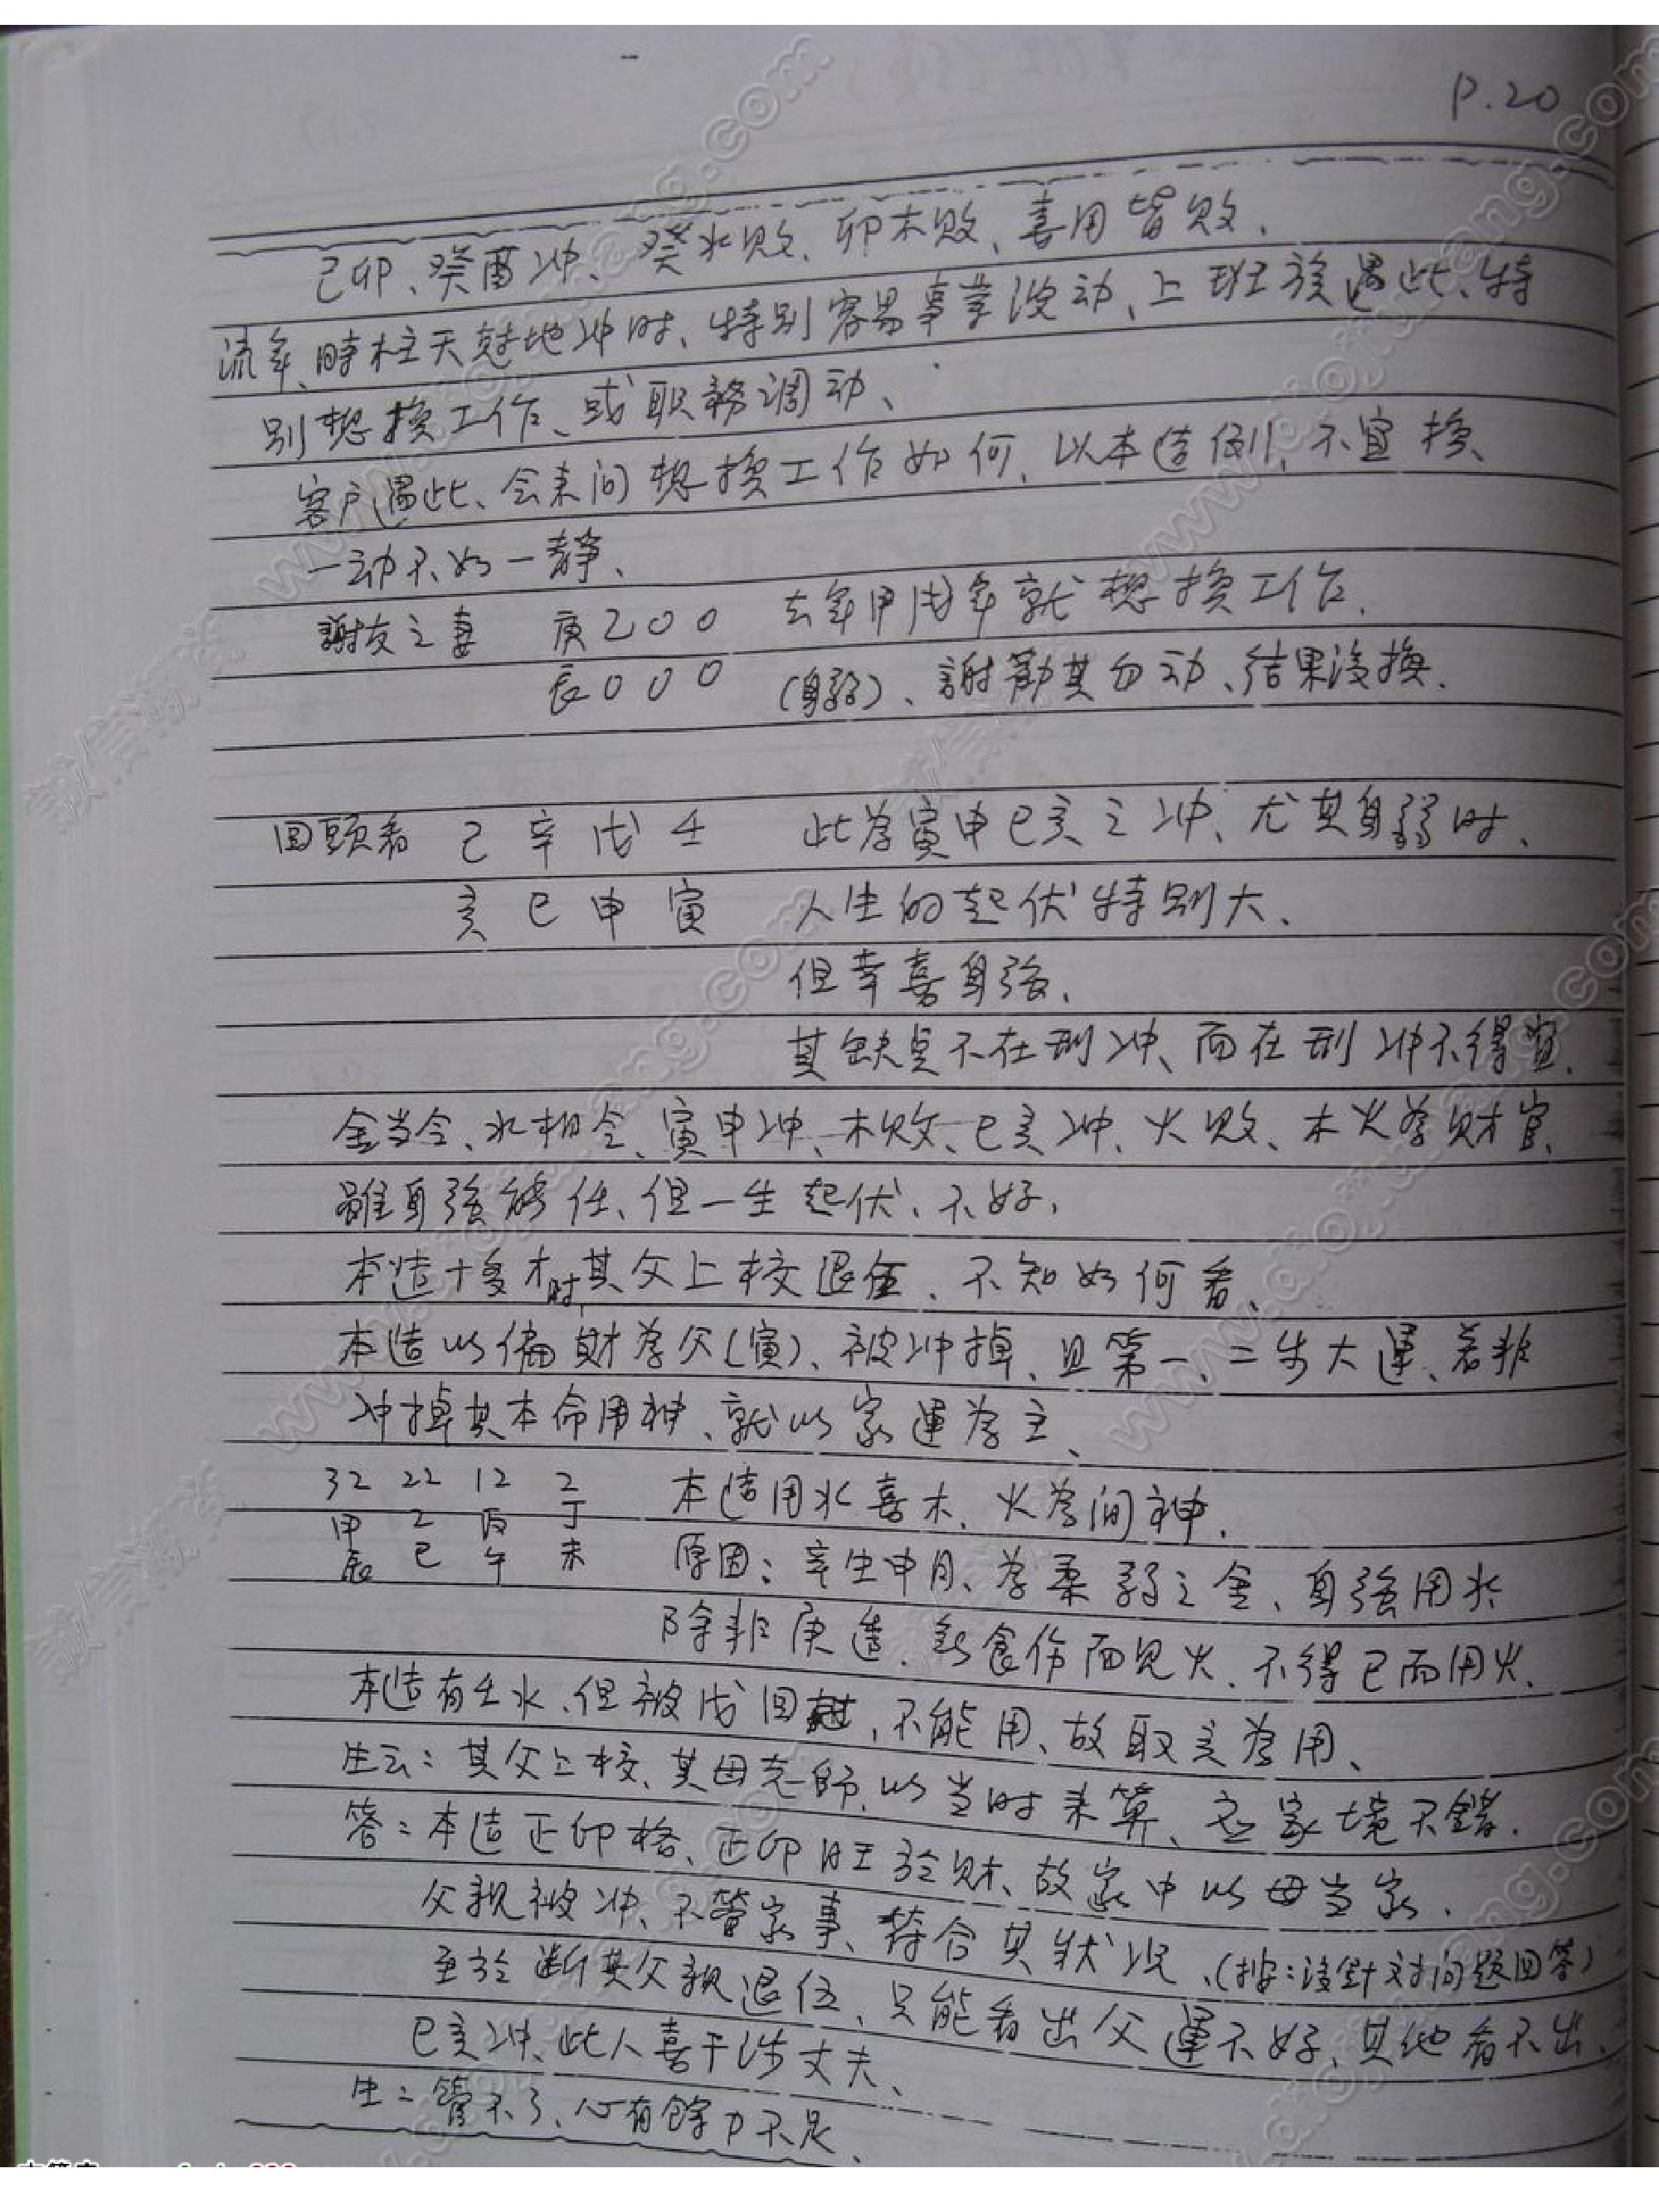 P.20
己卯、癸酉冲、癸水败、卯木败、喜用皆败.
流年、時柱天尅地冲时、特别容易事業波动、上班族遇此、特
别想换工作、或职務调动、
客户遇此、会来问想换工作如何、以本造例、不宜换、
一动不如一静、
謝友之妻 庚乙00 去年甲戌年就想换工作.
辰000 (身弱)、謝勸其勿动、结果没换.
回頭看 己辛戊壬 此為寅申巳亥之冲、尤其身弱时、
亥巳申寅 人生的起伏特别大、
但幸喜身強、
其缺点不在刑冲、而在刑冲不得宜.
金当令、水相令、寅申冲、木败、巳亥冲、火败、木火為财官、
雖身強能任、但一生起伏、不好、
本造十多才时其父上校退伍、不知如何看、
本造以偏财為父(寅)、被冲掉、且第一、二步大運、若非
冲掉其本命用神、就以家運為主、
32 22 12 2 本造用水喜木、火為间神.
甲 乙 丙 丁
辰 巳 午 未 原因:辛生申月、為柔弱之金、身強用水
除非庚造、無食伤而見火、不得已而用火.
本造有壬水、但被戊回尅、不能用、故取亥為用、
生云:其父上校、其母老師、以当时来算、应家境不錯.
答:本造正印格、正印旺於财、故家中以母当家、
父親被冲、不管家事、符合其狀况、(按:没針对问题回答)
至於断其父親退伍、只能看出父運不好、其他看不出.
巳亥冲、此人喜干涉丈夫、
生:管不了、心有餘力不足、